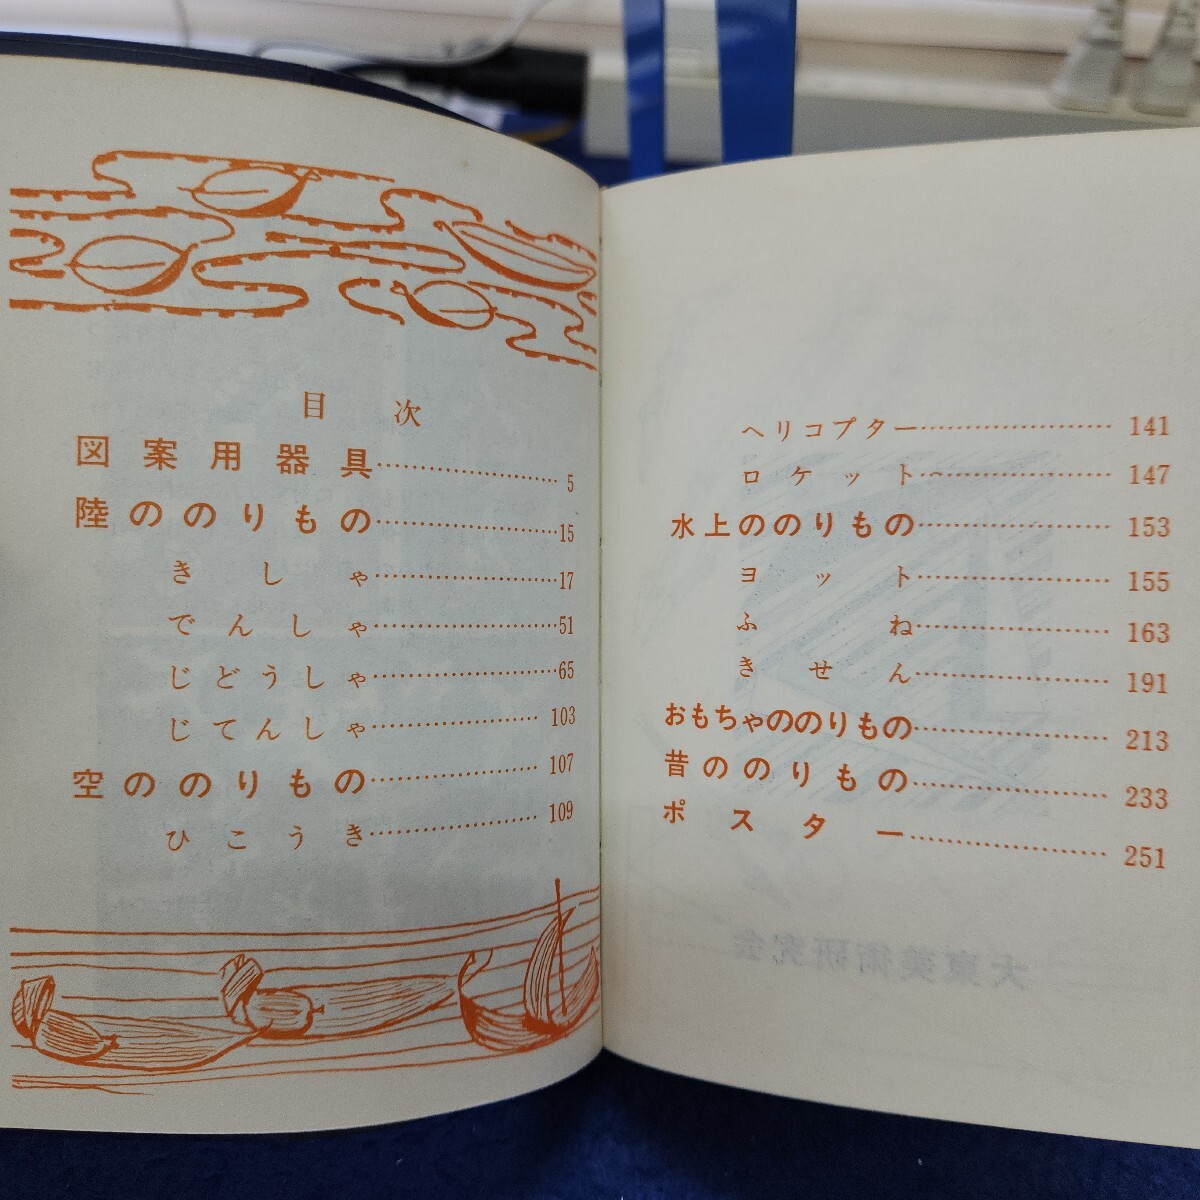 目次
図案用器具 5
陸ののりもの 15
きしゃ 17
でんしゃ 51
じどうしゃ 65
じてんしゃ 103
空ののりもの 107
ひこうき 109
ヘリコプター 141
ロケット 147
水上ののりもの 153
ヨット 155
ふね 163
きせん 191
おもちゃののりもの 213
昔ののりもの 233
ポスター 251
大東美術研究会